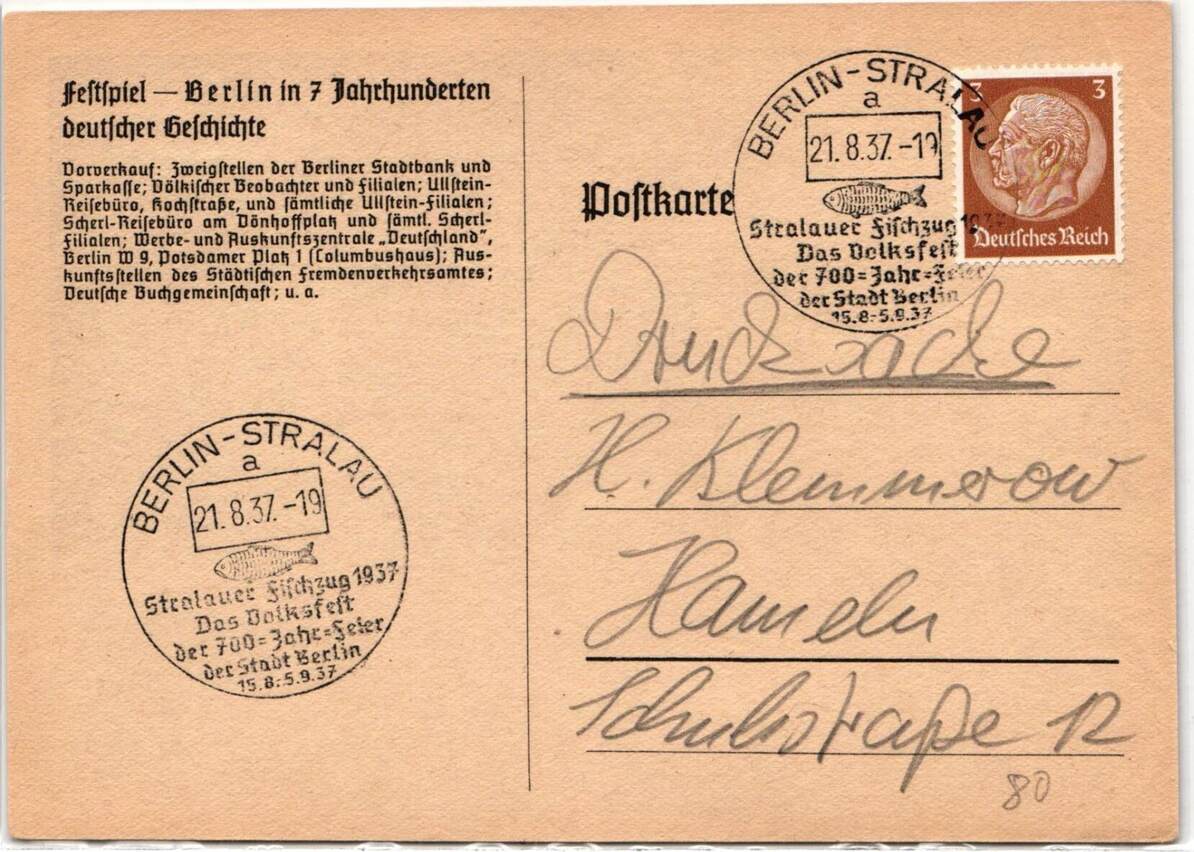 Festspiel — Berlin in 7 Jahrhunderten
deutscher Geschichte
Vorverkauf: Zweigstellen der Berliner Stadtbank und
Sparkasse; Völkischer Beobachter und Filialen; Ullstein-
Reisebüro, Kochstraße, und sämtliche Ullstein-Filialen;
Scherl-Reisebüro am Dönhoffplatz und sämtl. Scherl-
Filialen; Werbe- und Auskunftszentrale „Deutschland",
Berlin W 9, Potsdamer Platz 1 (Columbushaus); Aus-
kunftsstellen des Städtischen Fremdenverkehrsamtes;
Deutsche Buchgemeinschaft; u. a.
BERLIN-STRALAU
a
21.8.37.-19
Stralauer Fischzug 1937
Das Volksfest
der 700=Jahr=Feier
der Stadt Berlin
15.8.-5.9.37
Postkarte
BERLIN-STRALAU
a
21.8.37.-19
Stralauer Fischzug 1937
Das Volksfest
der 700=Jahr=Feier
der Stadt Berlin
15.8.-5.9.37
3 3
Deutsches Reich
Drucksache
H. Klemmerow
Hameln
Schulstraße 12
80